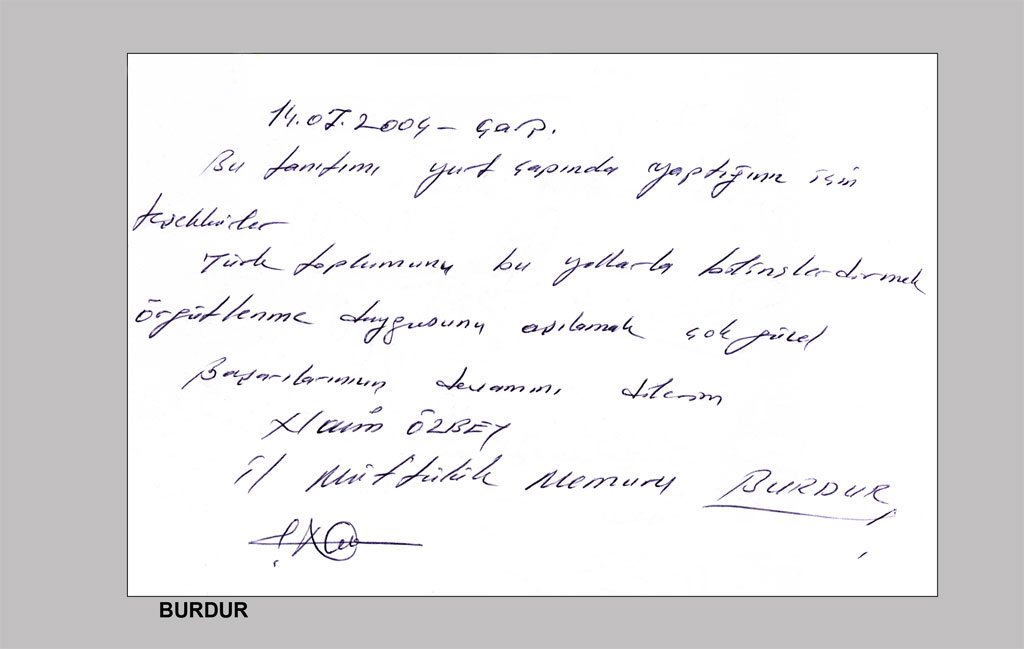 14.07.2004 - Çarş.
Bu tanıtımı yurt çapında yaptığınız için
teşekkürler
Türk toplumunu bu yollarla bilinçlendirmek
örgütlenme duygusunu aşılamak çok güzel
Başarılarınızın devamını dilerim
ÖZBEY
İl Müftülük Memuru BURDUR
BURDUR